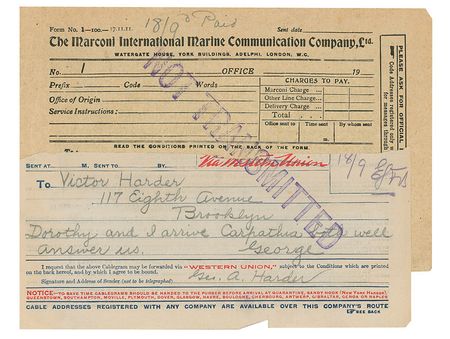 18/9 Paid
Form No. 1—100.—17.11.11. Sent date
The Marconi International Marine Communication Company, Ltd.
WATERGATE HOUSE, YORK BUILDINGS, ADELPHI, LONDON, W.C.
No. 1 OFFICE 19
Prefix Code Words
Office of Origin
Service Instructions:
CHARGES TO PAY.
Marconi Charge
Other Line Charge
Delivery Charge
Total
Office sent to Time sent By whom sent
READ THE CONDITIONS PRINTED ON THE BACK OF THE FORM.
PLEASE ASK FOR OFFICIAL
Code Addresses registered only
for messages through
NOT TRANSMITTED
SENT AT M. SENT TO: BY Via Western Union
18/9
To Victor Harder
117 Eighth Avenue
Brooklyn
Dorothy and I arrive Carpathia both well
Answer us. George
I request that the above Cablegram may be forwarded via "WESTERN UNION," subject to the Conditions which are printed
on the back hereof, and by which I agree to be bound.
Signature and Address of Sender (not to be telegraphed) Geo. A. Harder
NOTICE—TO SAVE TIME CABLEGRAMS SHOULD BE HANDED TO THE PURSER BEFORE ARRIVAL AT QUARANTINE, SANDY HOOK (New York Harbor),
QUEENSTOWN, SOUTHAMPTON, MOVILLE, PLYMOUTH, DOVER, GLASGOW, HAVRE, BOULOGNE, CHERBOURG, ANTWERP, GIBRALTAR, GENOA OR NAPLES
CABLE ADDRESSES REGISTERED WITH ANY COMPANY ARE AVAILABLE OVER THIS COMPANY'S ROUTE
SEE BACK